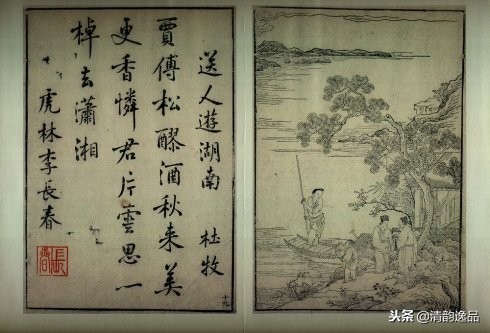 送人遊湖南 杜牧
賈傅松醪酒秋来美
更香憐君片雲思一
棹去瀟湘
虎林李長春
十九
头条@清韵逸品